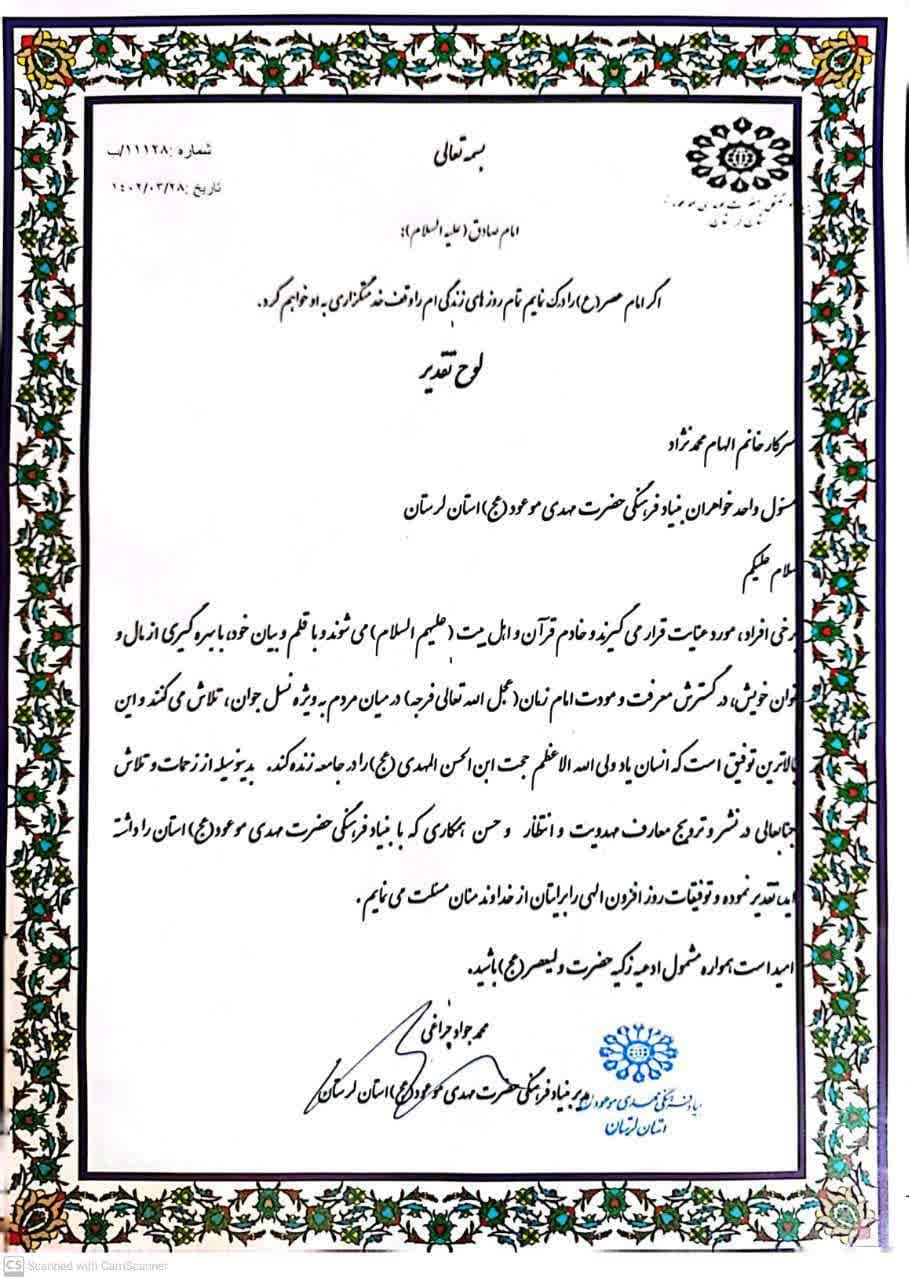 بسمه تعالی
شماره :۱۱۱۲۸/ب
تاریخ :۱۴۰۲/۰۳/۲۸
امام صادق (علیه السلام):
اگر امام عصر(ع) را درک نمایم تمام روزهای زندگی ام را وقف خدمتگزاری به او خواهم کرد.
لوح تقدیر
سرکار خانم الهام محمدنژاد
مسئول واحد خواهران بنیاد فرهنگی حضرت مهدی موعود (عج) استان لرستان
سلام علیکم
برخی افراد، مورد عنایت قرار می گیرند و خادم قرآن و اهل بیت (علیهم السلام) می شوند و با قلم و بیان خود، با بهره گیری از مال و
توان خویش، در گسترش معرفت و مودت امام زمان (عجل الله تعالی فرجه) در میان مردم به ویژه نسل جوان، تلاش می کنند و این
بالاترین توفیق است که انسان یاد ولی الله الاعظم حجت ابن الحسن المهدی (عج) را در جامعه زنده کند. بدینوسیله از زحمات و تلاش
جنابعالی در نشر و ترویج معارف مهدویت و انتظار و حسن همکاری که با بنیاد فرهنگی حضرت مهدی موعود(عج) استان را داشته
اید، تقدیر نموده و توفیقات روز افزون الهی را برایتان از خداوند منان مسئلت می نمایم .
امید است همواره مشمول ادعیه زکیه حضرت ولیعصر (عج) باشید.
محمد جواد چراغی
مدیر بنیاد فرهنگی حضرت مهدی موعود (عج) استان لرستان
بنیاد فرهنگی مهدی موعود
استان لرستان
CS Scanned with CamScanner